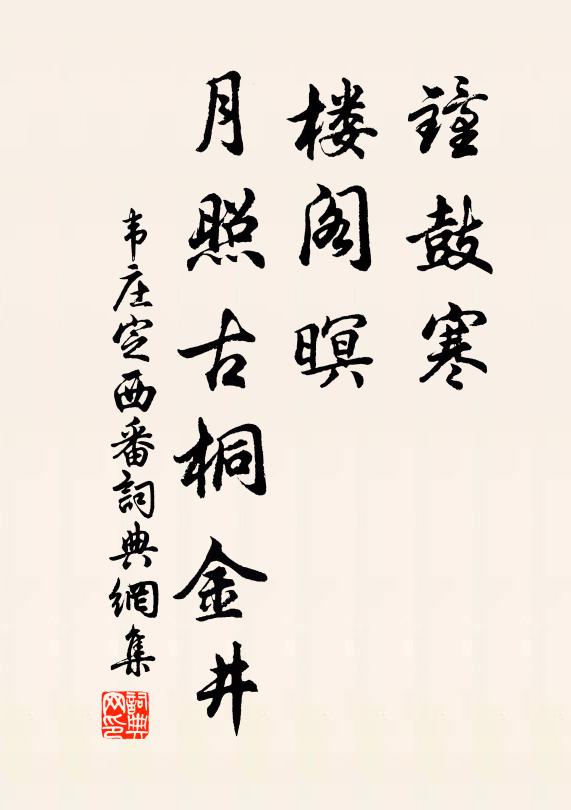 鐘鼓寒
楼阁暝
月照古桐金井
韦庄定西番詞典網集
詞典网印